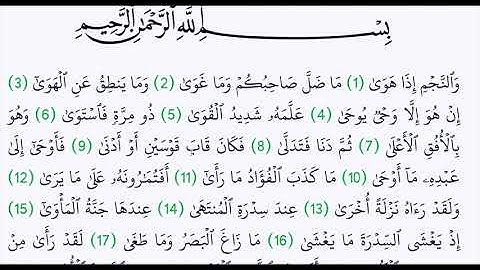 بِسْمِ اللَّهِ الرَّحْمَٰنِ الرَّحِيمِ
وَالنَّجْمِ إِذَا هَوَىٰ (1) مَا ضَلَّ صَاحِبُكُمْ وَمَا غَوَىٰ (2) وَمَا يَنطِقُ عَنِ الْهَوَىٰ (3)
إِنْ هُوَ إِلَّا وَحْيٌ يُوحَىٰ (4) عَلَّمَهُ شَدِيدُ الْقُوَىٰ (5) ذُو مِرَّةٍ فَاسْتَوَىٰ (6) وَهُوَ
بِالْأُفُقِ الْأَعْلَىٰ (7) ثُمَّ دَنَا فَتَدَلَّىٰ (8) فَكَانَ قَابَ قَوْسَيْنِ أَوْ أَدْنَىٰ (9) فَأَوْحَىٰ إِلَىٰ
عَبْدِهِ مَا أَوْحَىٰ (10) مَا كَذَبَ الْفُؤَادُ مَا رَأَىٰ (11) أَفَتُمَارُونَهُ عَلَىٰ مَا يَرَىٰ (12)
وَلَقَدْ رَءَاهُ نَزْلَةً أُخْرَىٰ (13) عِندَ سِدْرَةِ الْمُنتَهَىٰ (14) عِندَهَا جَنَّةُ الْمَأْوَىٰ (15)
إِذْ يَغْشَى السِّدْرَةَ مَا يَغْشَىٰ (16) مَا زَاغَ الْبَصَرُ وَمَا طَغَىٰ (17) لَقَدْ رَأَىٰ مِنْ